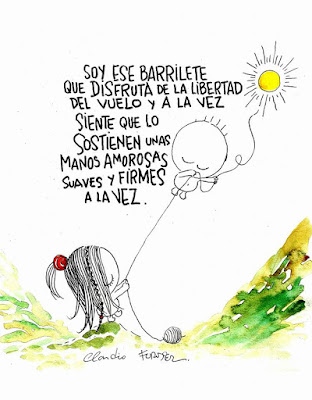 SOY ESE BARRILETE
QUE DISFRUTA DE LA LIBERTAD
DEL VUELO Y A LA VEZ
SIENTE QUE LO
SOSTIENEN UNAS
MANOS AMOROSAS
SUAVES Y FIRMES
A LA VEZ.
Claudio